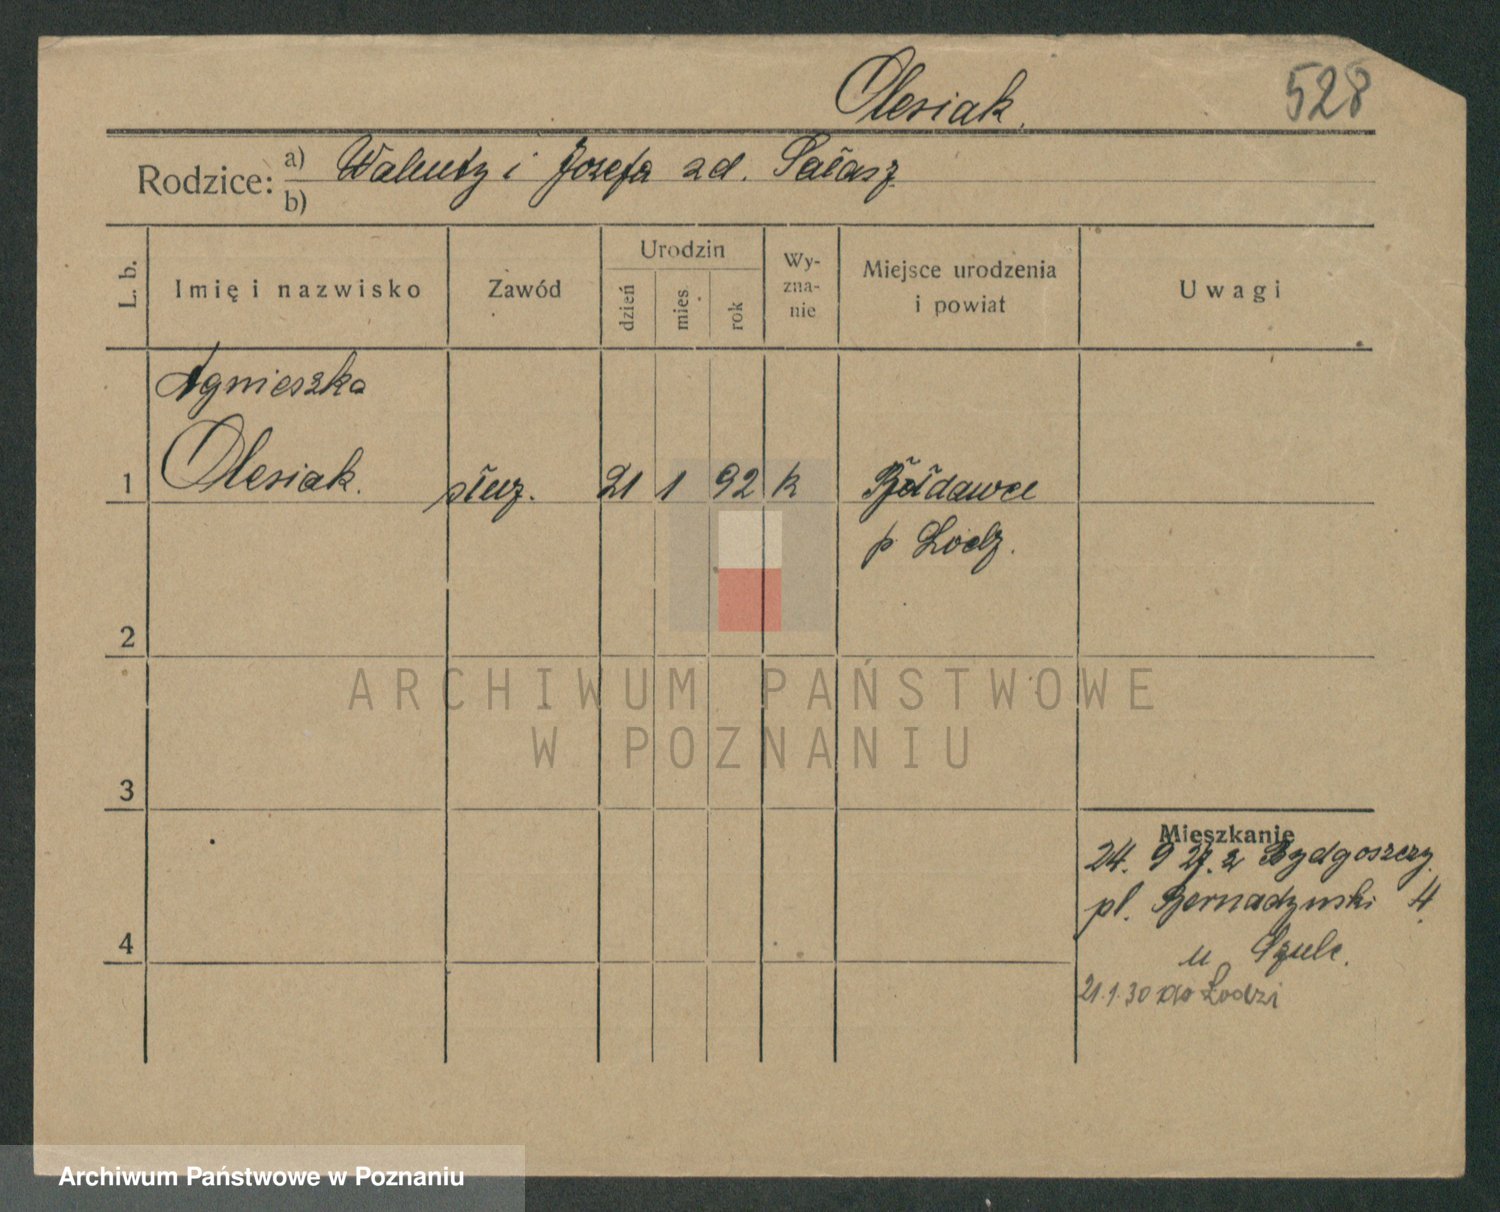 Olesiak.
528
Rodzice: a) Walenty i Józefa zd. Sałasz
b)
L. b.
Imię i nazwisko
Zawód
Urodzin
dzień
mies.
rok
Wy-
zna-
nie
Miejsce urodzenia
i powiat
Uwagi
Agnieszka
1 Olesiak. służ. 21 1 92 k
p Łodz.
2
3
4
Mieszkanie
24. 9 27. z Bydgoszczy
pl. Bernadynski 4
u Szulc.
21.1.30 do Łodzi
ARCHIWUM PAŃSTWOWE
W POZNANIU
Archiwum Państwowe w Poznaniu